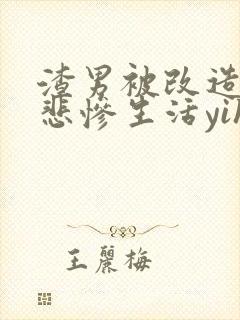 渣男被改造
悲惨生活yi
王麗梅